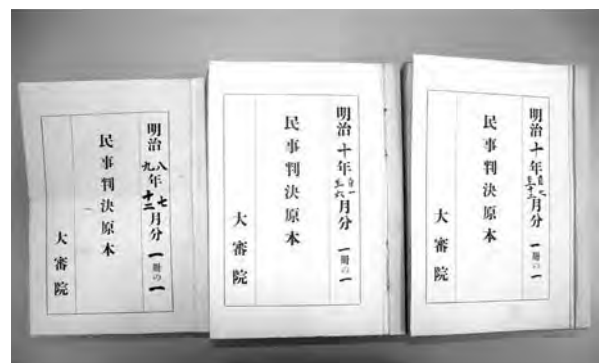 明治八九年七十二月分 一冊の一
民事判決原本
大審院
明治十年自一至六月分 一冊の一
民事判決原本
大審院
明治十年自七至十二月分 一冊の一
民事判決原本
大審院